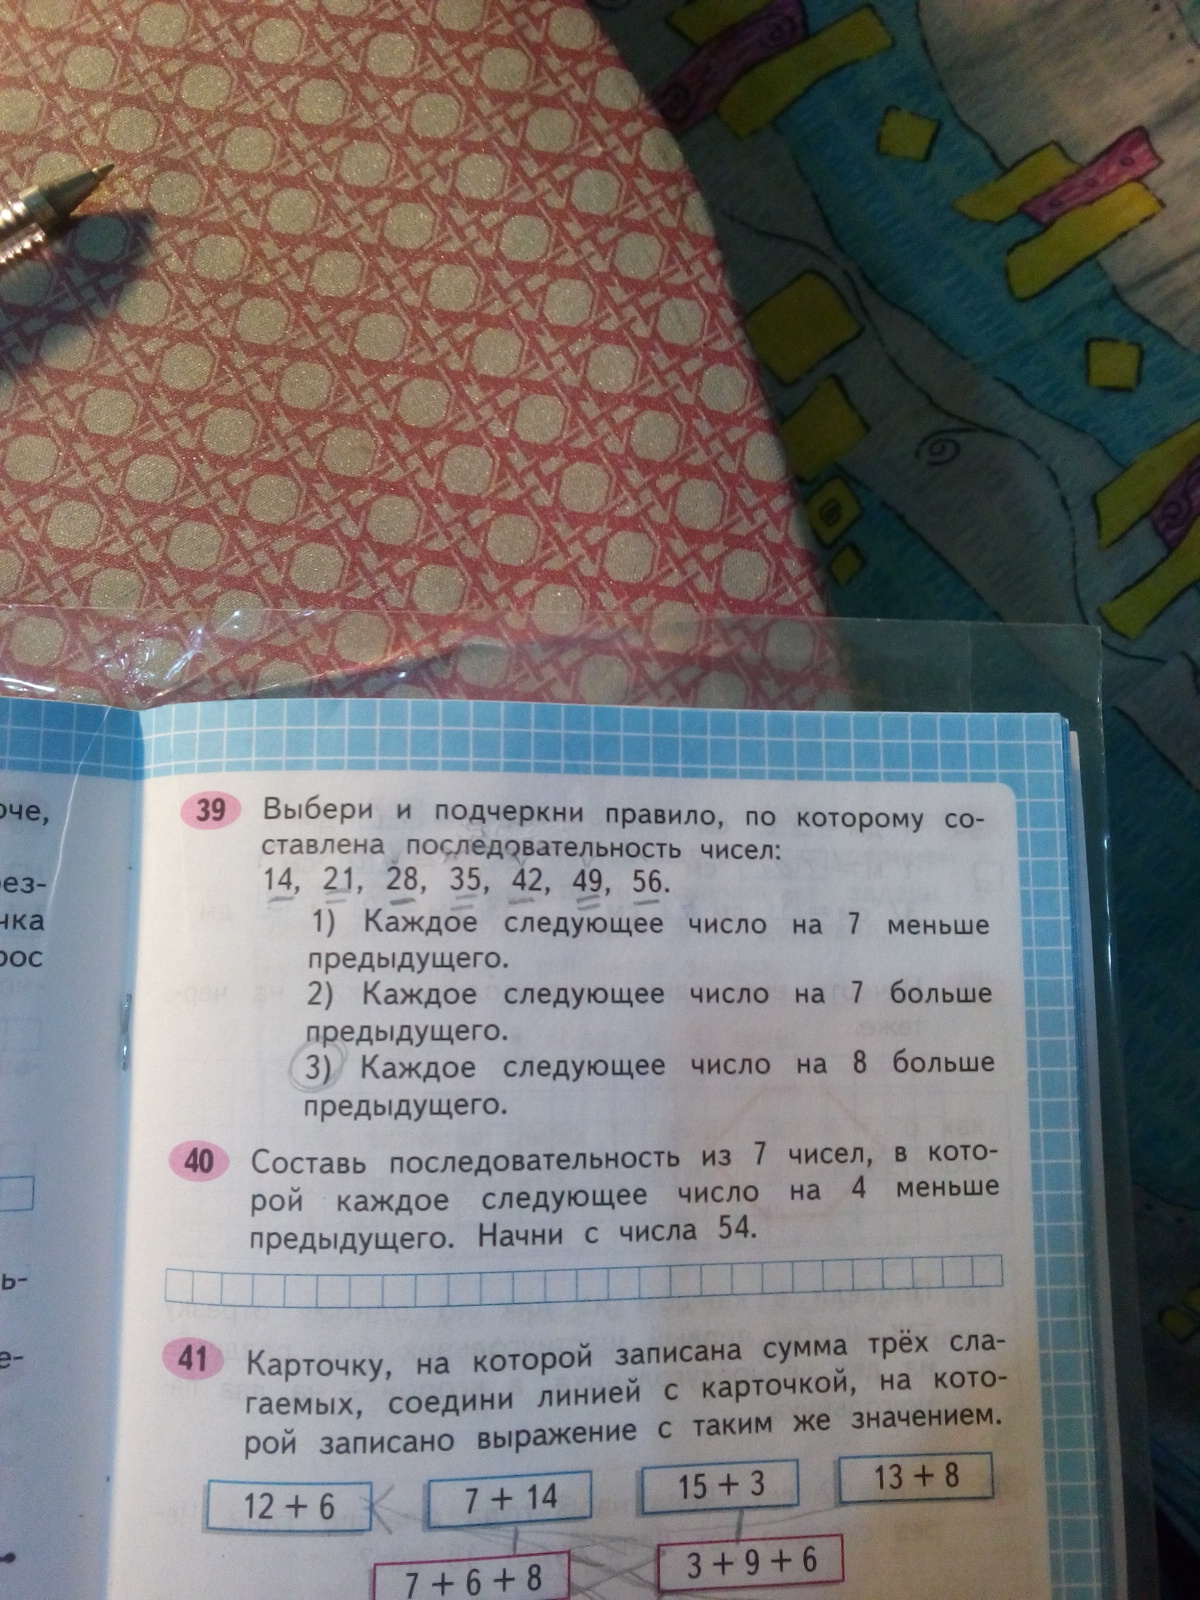 39 Выбери и подчеркни правило, по которому со-
ставлена последовательность чисел:
14, 21, 28, 35, 42, 49, 56.
1) Каждое следующее число на 7 меньше
предыдущего.
2) Каждое следующее число на 7 больше
предыдущего.
3) Каждое следующее число на 8 больше
предыдущего.
40 Составь последовательность из 7 чисел, в кото-
рой каждое следующее число на 4 меньше
предыдущего. Начни с числа 54.
41 Карточку, на которой записана сумма трёх сла-
гаемых, соедини линией с карточкой, на кото-
рой записано выражение с таким же значением.
12 + 6 7 + 14 15 + 3 13 + 8
7 + 6 + 8 3 + 9 + 6